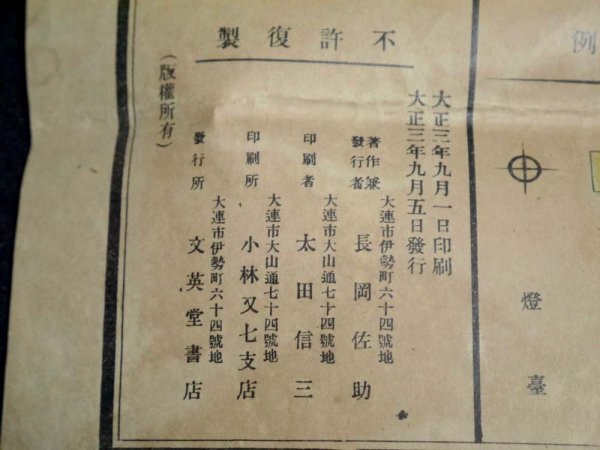 例
燈臺
不許復製
大正三年九月一日印刷
大正三年九月五日發行
著作兼發行者
大連市伊勢町六十四號地
長岡佐助
印刷者
大連市大山通七十四號地
太田信三
印刷所
大連市大山通七十四號地
小林又七支店
發行所
大連市伊勢町六十四號地
文英堂書店
(版權所有)